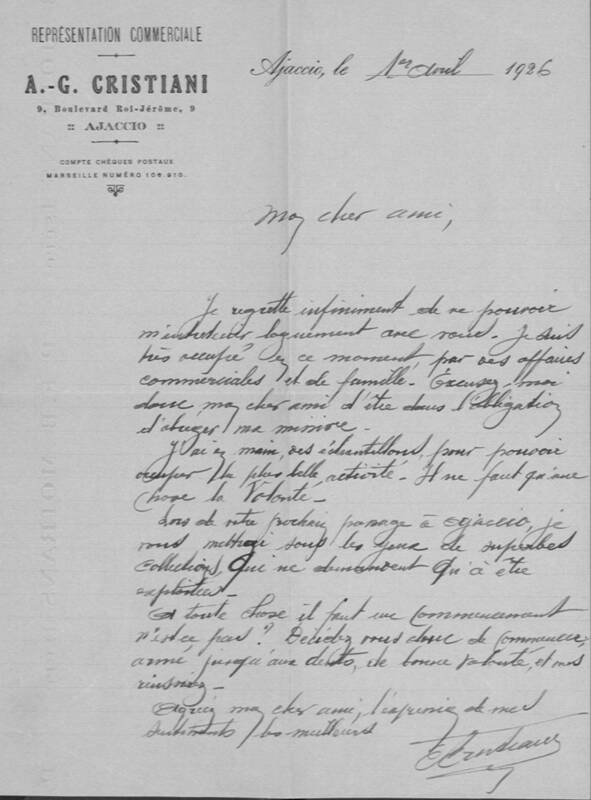 REPRÉSENTATION COMMERCIALE
A.-G. CRISTIANI
9, Boulevard Roi-Jérôme, 9
:: AJACCIO ::
COMPTE CHÈQUES POSTAUX
MARSEILLE NUMÉRO 106.910.
Ajaccio, le 1er avril 1926
Mon cher ami,
Je regrette infiniment de ne pouvoir
m'entretenir longuement avec vous. Je suis
très occupé en ce moment, par des affaires
commerciales et de famille. Excusez-moi
donc mon cher ami d'être dans l'obligation
d'abréger ma missive.
J'ai en main, des échantillons, pour pouvoir
occuper la plus belle activité. Il ne faut qu'une
chose la Volonté.
Lors de votre prochain passage à Ajaccio, je
vous mettrai sous les yeux de superbes
collections, qui ne demandent qu'à être
exploitées.
A toute chose il faut un commencement
n'est ce pas ? Décidez vous donc de commencer,
armé jusqu'aux dents, de bonne volonté, et vous
réussirez.
Agréez mon cher ami, l'expression de mes
sentiments les meilleurs
Cristiani